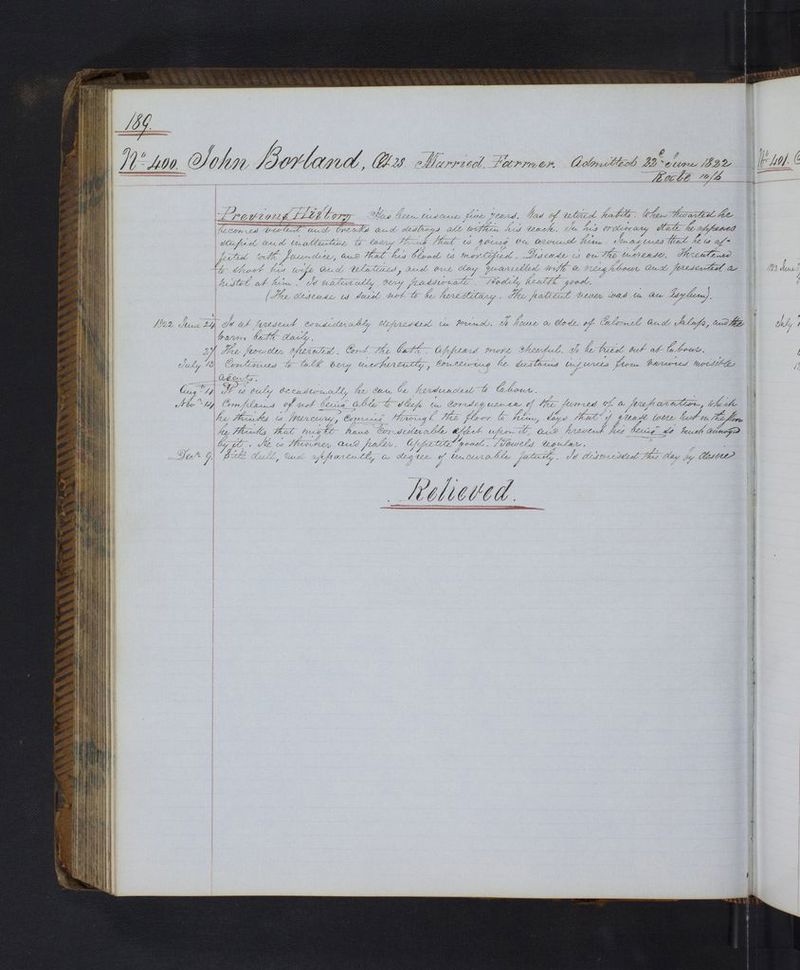 189.
No 400. John Borland. Æt 28 Married. Farmer. Admitted 22d June 1822
Rate 10/6
Previous History Has been insane five years. Was of retired habits. When thwarted he
becomes violent and breaks and destroys all within his reach. In his ordinary state he appears
stupid and inattentive to every thing that is going on around him. Imagines that he is af-
fected with Jaundice, and that his blood is mortified. Disease is on the increase. Threatened
to shoot his wife and relatives, and one day quarrelled with a neighbour and presented a
pistol at him. Is naturally very passionate. Bodily health good.
(The disease is said not to be hereditary. The patient never was in an Asylum).
1822 June 24 Is at present considerably depressed in mind. To have a dose of Calomel and Jalap, and the
warm bath daily.
27 The powder operated. Cont. the bath. Appears more cheerful. To be tried out at labour.
July 12 Continues to talk very incoherently, conceiving he sustains injuries from various invisible
agents.
Aug 4 It is only occasionally he can be persuaded to labour.
Novr 4 Complains of not being able to sleep in consequence of the fumes of a preparation, which
he thinks is mercury, coming through the floor to him, says that if grease were put on the floor
he thinks that might have considerable effect upon it, and prevent his being so much annoyed
by it. He is thinner and paler. Appetite good. Bowels regular.
Decr 9 dull, and apparently a degree of incurable fatuity. Is dismissed this day by desire
Relieved.
No 401.